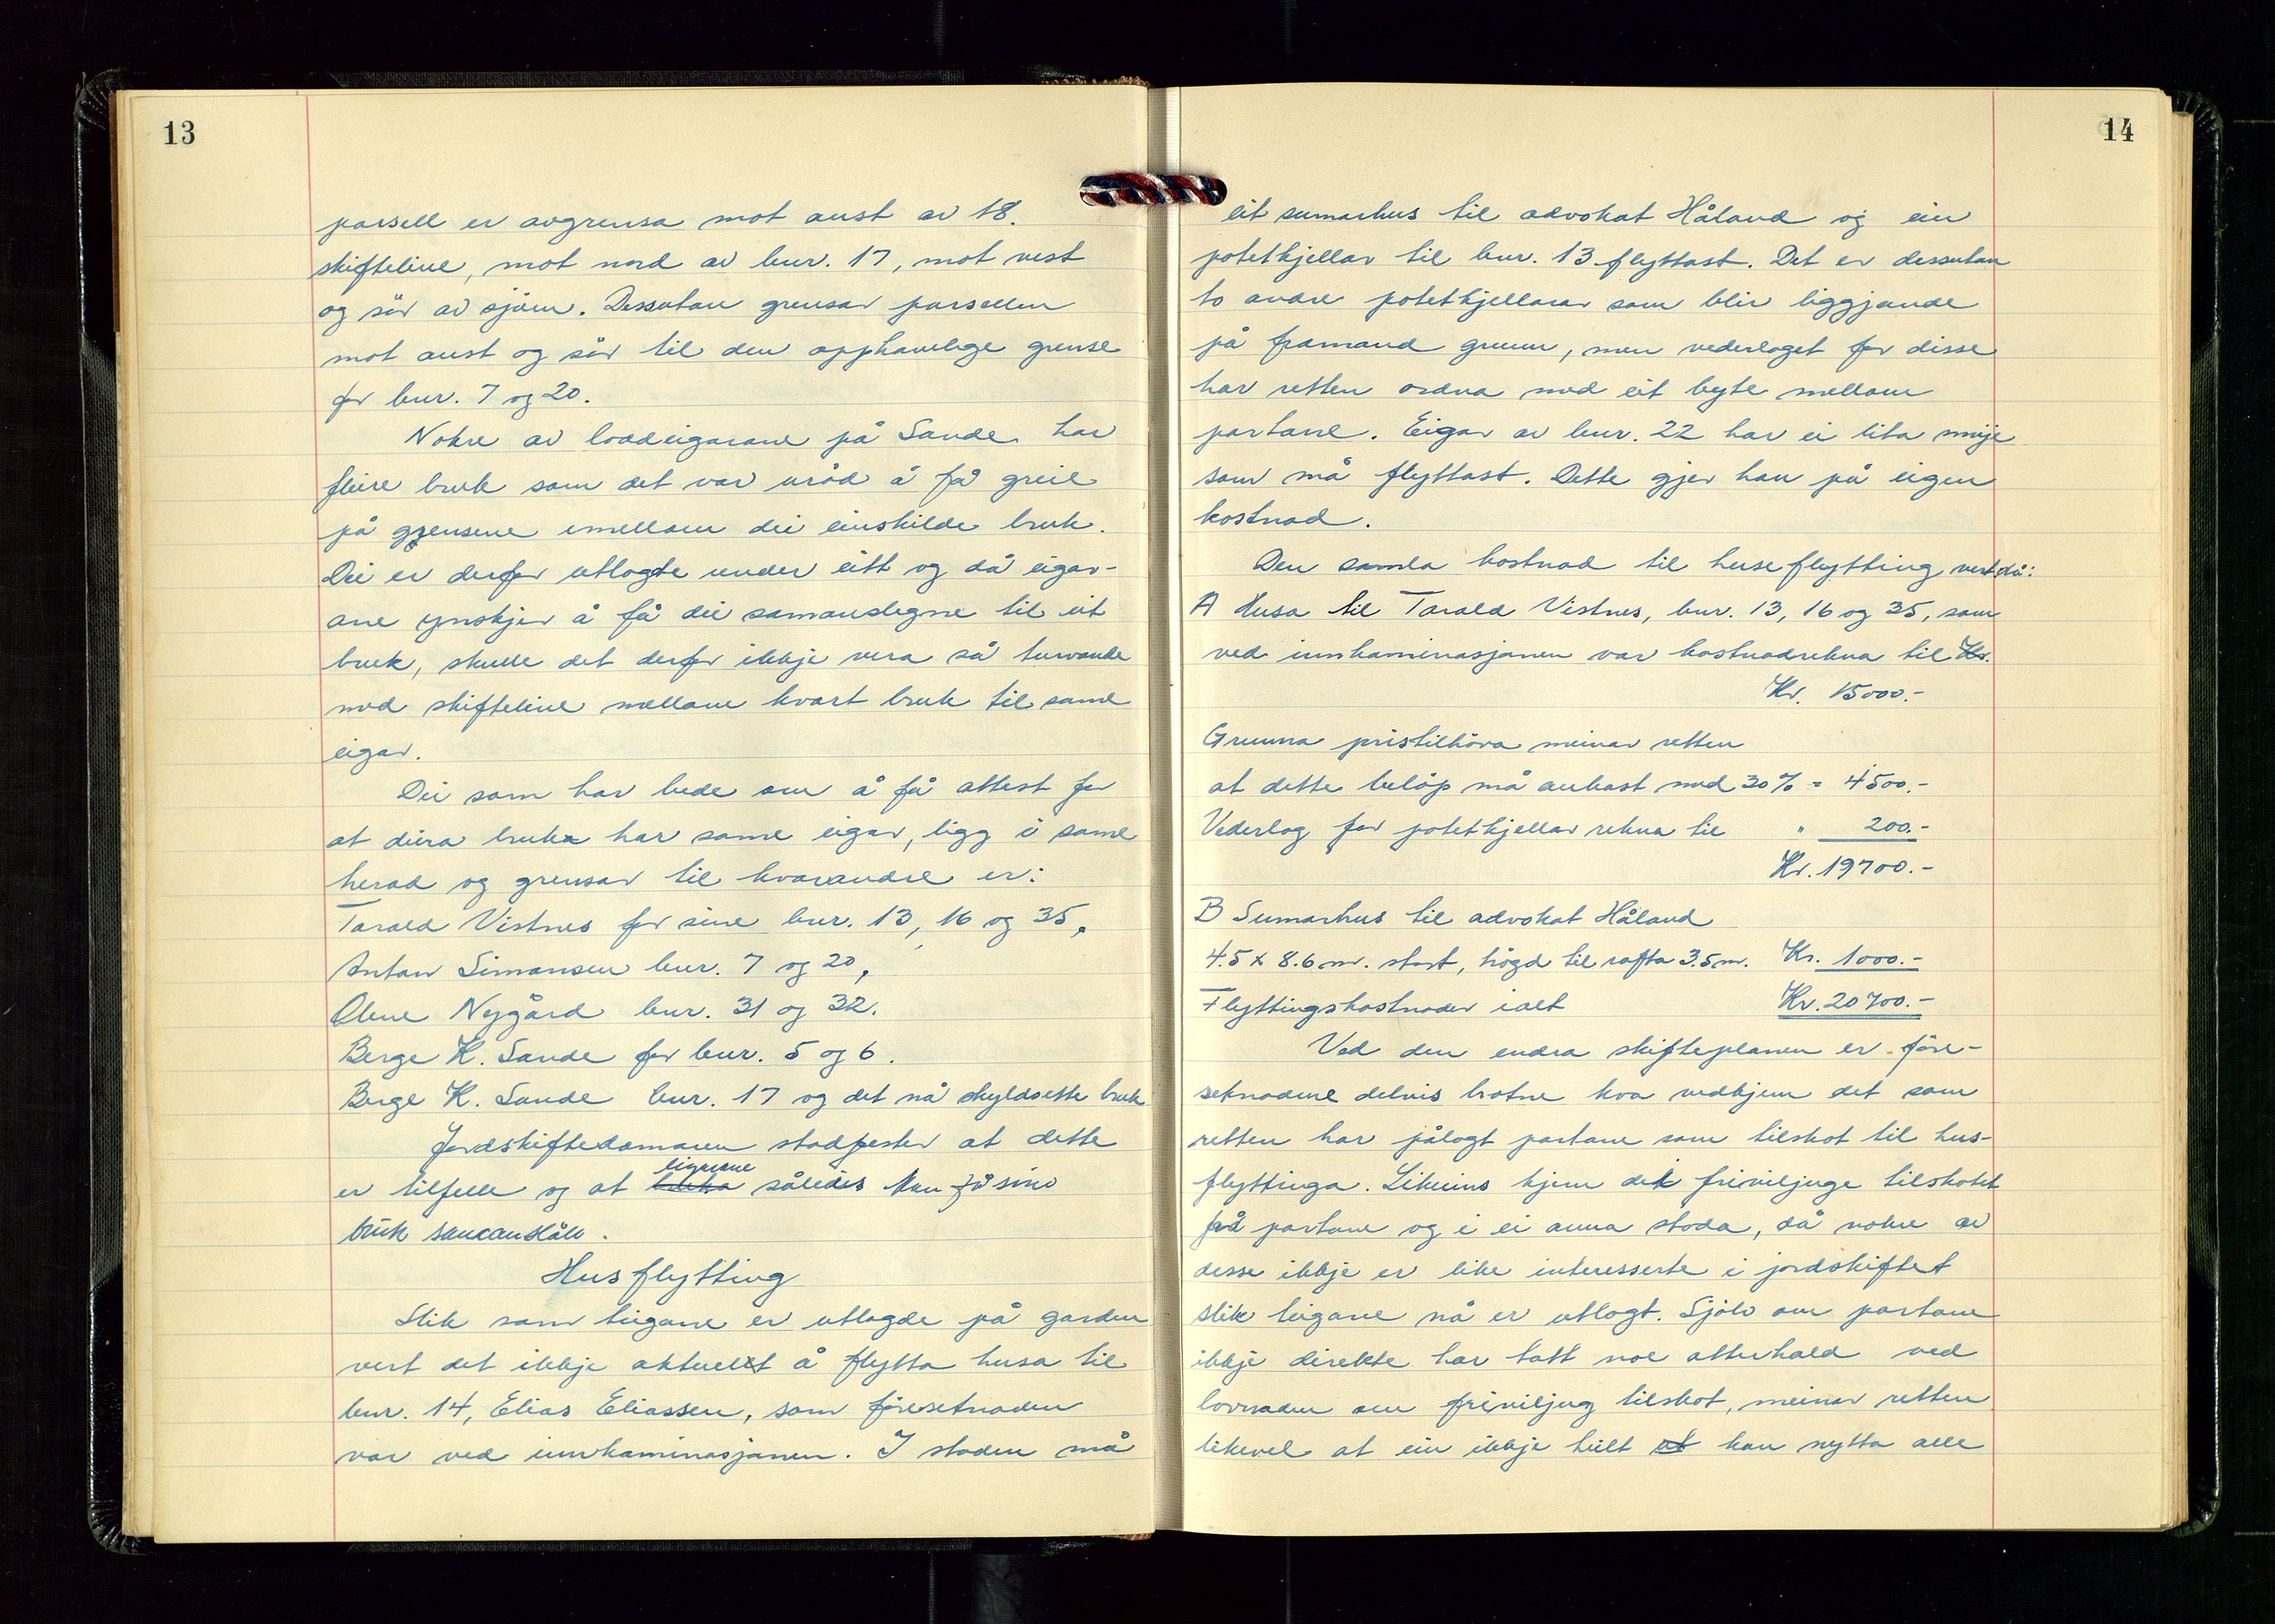 13
parsell er avgrensa mot aust av 18.
skifteline, mot nord av bnr. 17, mot vest
og sör av sjöen. Dessutan grensar parsellen
mot aust og sör til den opphavelege grense
for bnr. 7 og 20.
Nokre av loddeigarane på Sande har
fleire bruk som det var uråd å få greie
på grensene imellom dei einskilde bruk.
Dei er derfor utlagde under eitt og då eigar-
ane ynskjer å få dei samanslegne til eit
bruk, skulle det derfor ikkje vera så turvande
med skifteline mellom kvart bruk til same
eigar.
Dei som har bede om å få attest for
at deira bruk har same eigar, ligg i same
herad og grensar til kvarandre er:
Tarald Vistnes for sine bnr. 13, 16 og 35,
Anton Simonsen bnr. 7 og 20,
Olene Nygård bnr. 31 og 32.
Berge K. Sande for bnr. 5 og 6.
Berge K. Sande bnr. 17 og det nå skyldsette bruk
Jordskiftedomaren stadfester at dette
eigarane
er tilfelle og at således kan få sine
bruk samanslått.
Husflytting
Slik som teigane er utlagde på garden
vert det ikkje aktuelt å flytta husa til
bnr. 14, Elias Eliassen, som föresetnaden
var ved innkaminasjonen. I staden må
14
eit sumarhus til advokat Håland og ein
potetkjellar til bnr. 13 flyttast. Det er dessutan
to andre potetkjellarar som blir liggjande
på framand grunn, men vederlaget for disse
har retten ordna med eit byte mellom
partane. Eigar av bnr. 22 har ei lita smije
som må flyttast. Dette gjer han på eigen
kostnad.
Den samla kostnad til huseflytting vert då:
A Husa til Tarald Vistnes, bnr. 13, 16 og 35, som
ved innkaminasjonen var kostnadrekna til Kr.
Kr. 15000.-
Grunna pristilhöva meinar retten
at dette belöp må aukast med 30% = 4500.-
Vederlag for potetkjellar rekna til " 200.-
Kr. 19700.-
B Sumarhus til advokat Håland
4.5 x 8.6 m. stort, högd til rafta 3.5 m. Kr. 1000.-
Flyttingskostnader ialt Kr. 20700.-
Ved den endra skifteplanen er före-
setnadene delvis brotne kva vedkjem det som
retten har pålagt partane som tilskot til hus-
flyttinga. Likeeins kjem det friviljuge tilskotet
frå partane og i ei anna stoda, då nokre av
desse ikkje er like interesserte i jordskiftet
slik teigane nå er utlagt. Sjölv om partane
ikkje direkte har tatt noe atterhald ved
lovnaden om friviljug tilskot, meinar retten
likevel at ein ikkje heilt ut kan nytta alle